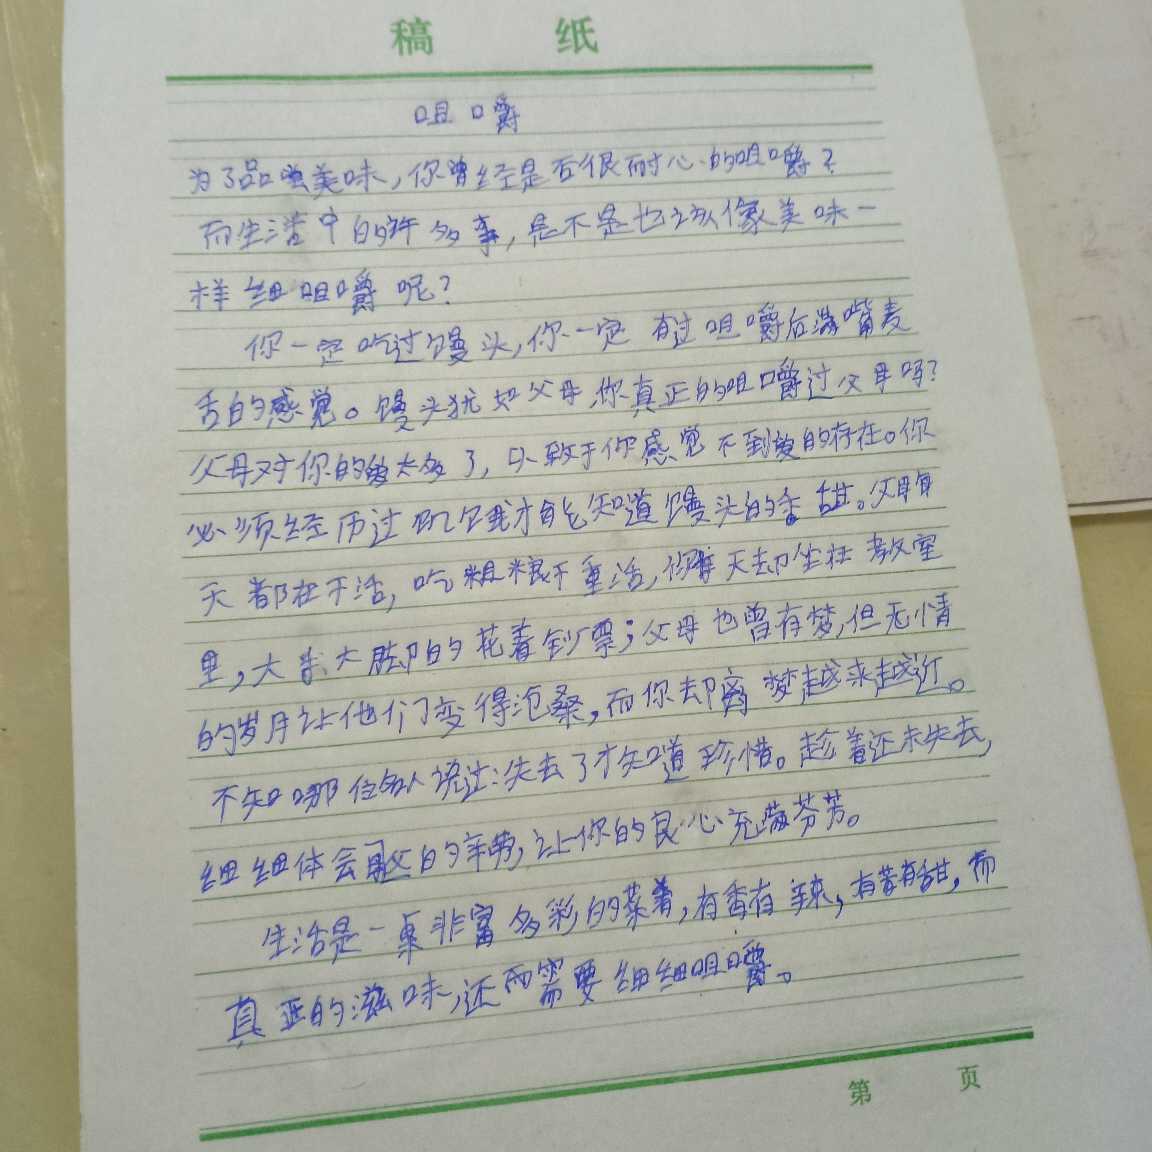 稿 纸
咀嚼
为了品尝美味,你曾经是否很耐心的咀嚼?
而生活中的许多事,是不是也该像美味一
样细咀嚼呢?
你一定吃过馒头,你一定有过咀嚼后满嘴麦
舌的感觉。馒头犹如父母,你真正的咀嚼过父母吗?
父母对你的爱太多了,以致于你感觉不到爱的存在。你
必须经历过饥饿才能知道馒头的香甜。父母每
天都在干活,吃粗粮干重活,你每天却坐在教室
里,大手大脚的花着钞票;父母也曾有梦,但无情
的岁月让他们变得沧桑,而你却离梦越来越近。
不知哪位名人说过:失去了才知道珍惜。趁着还未失去,
细细体会父母的辛劳,让你的良心充满芬芳。
生活是一桌非富多彩的菜肴,有香有辣,有苦有甜,而
真正的滋味,还需要细细咀嚼。
第 页